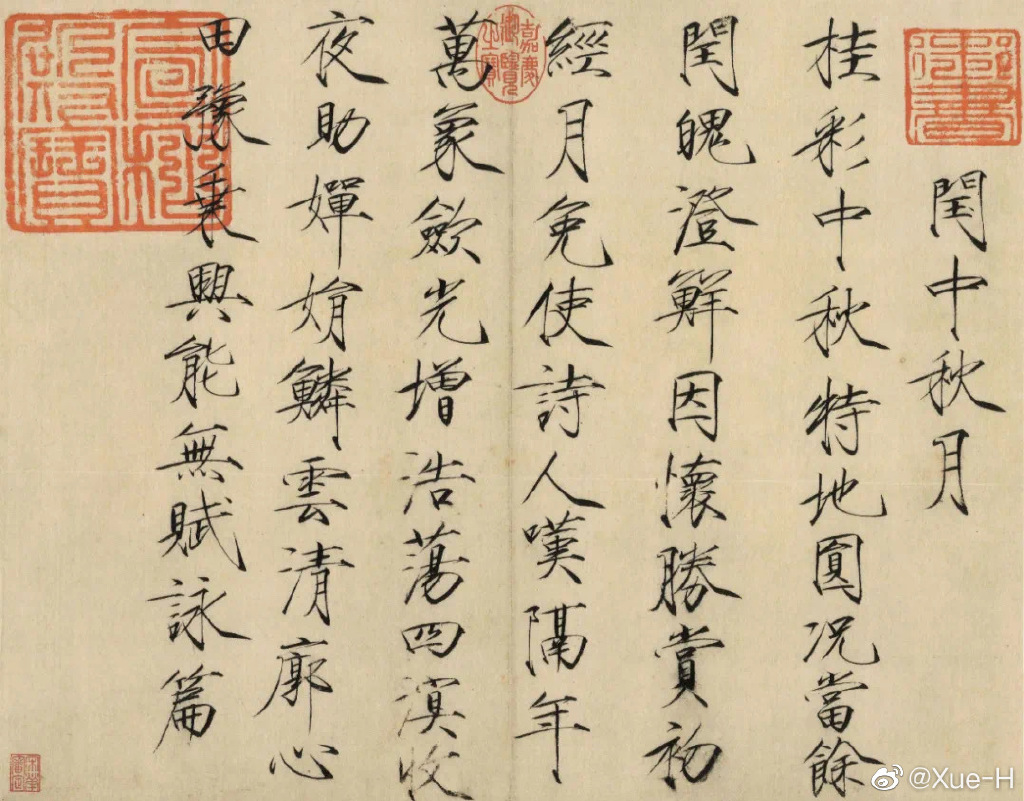 閏中秋月
桂彩中秋特地圓况當餘
閏魄澄鮮因懷勝賞初
經月免使詩人嘆隔年
萬象歛光增浩蕩四溟收
夜助嬋娟鱗雲清廓心
田豫乘興能無賦詠篇
嘉慶御覽之寶
@Xue-H